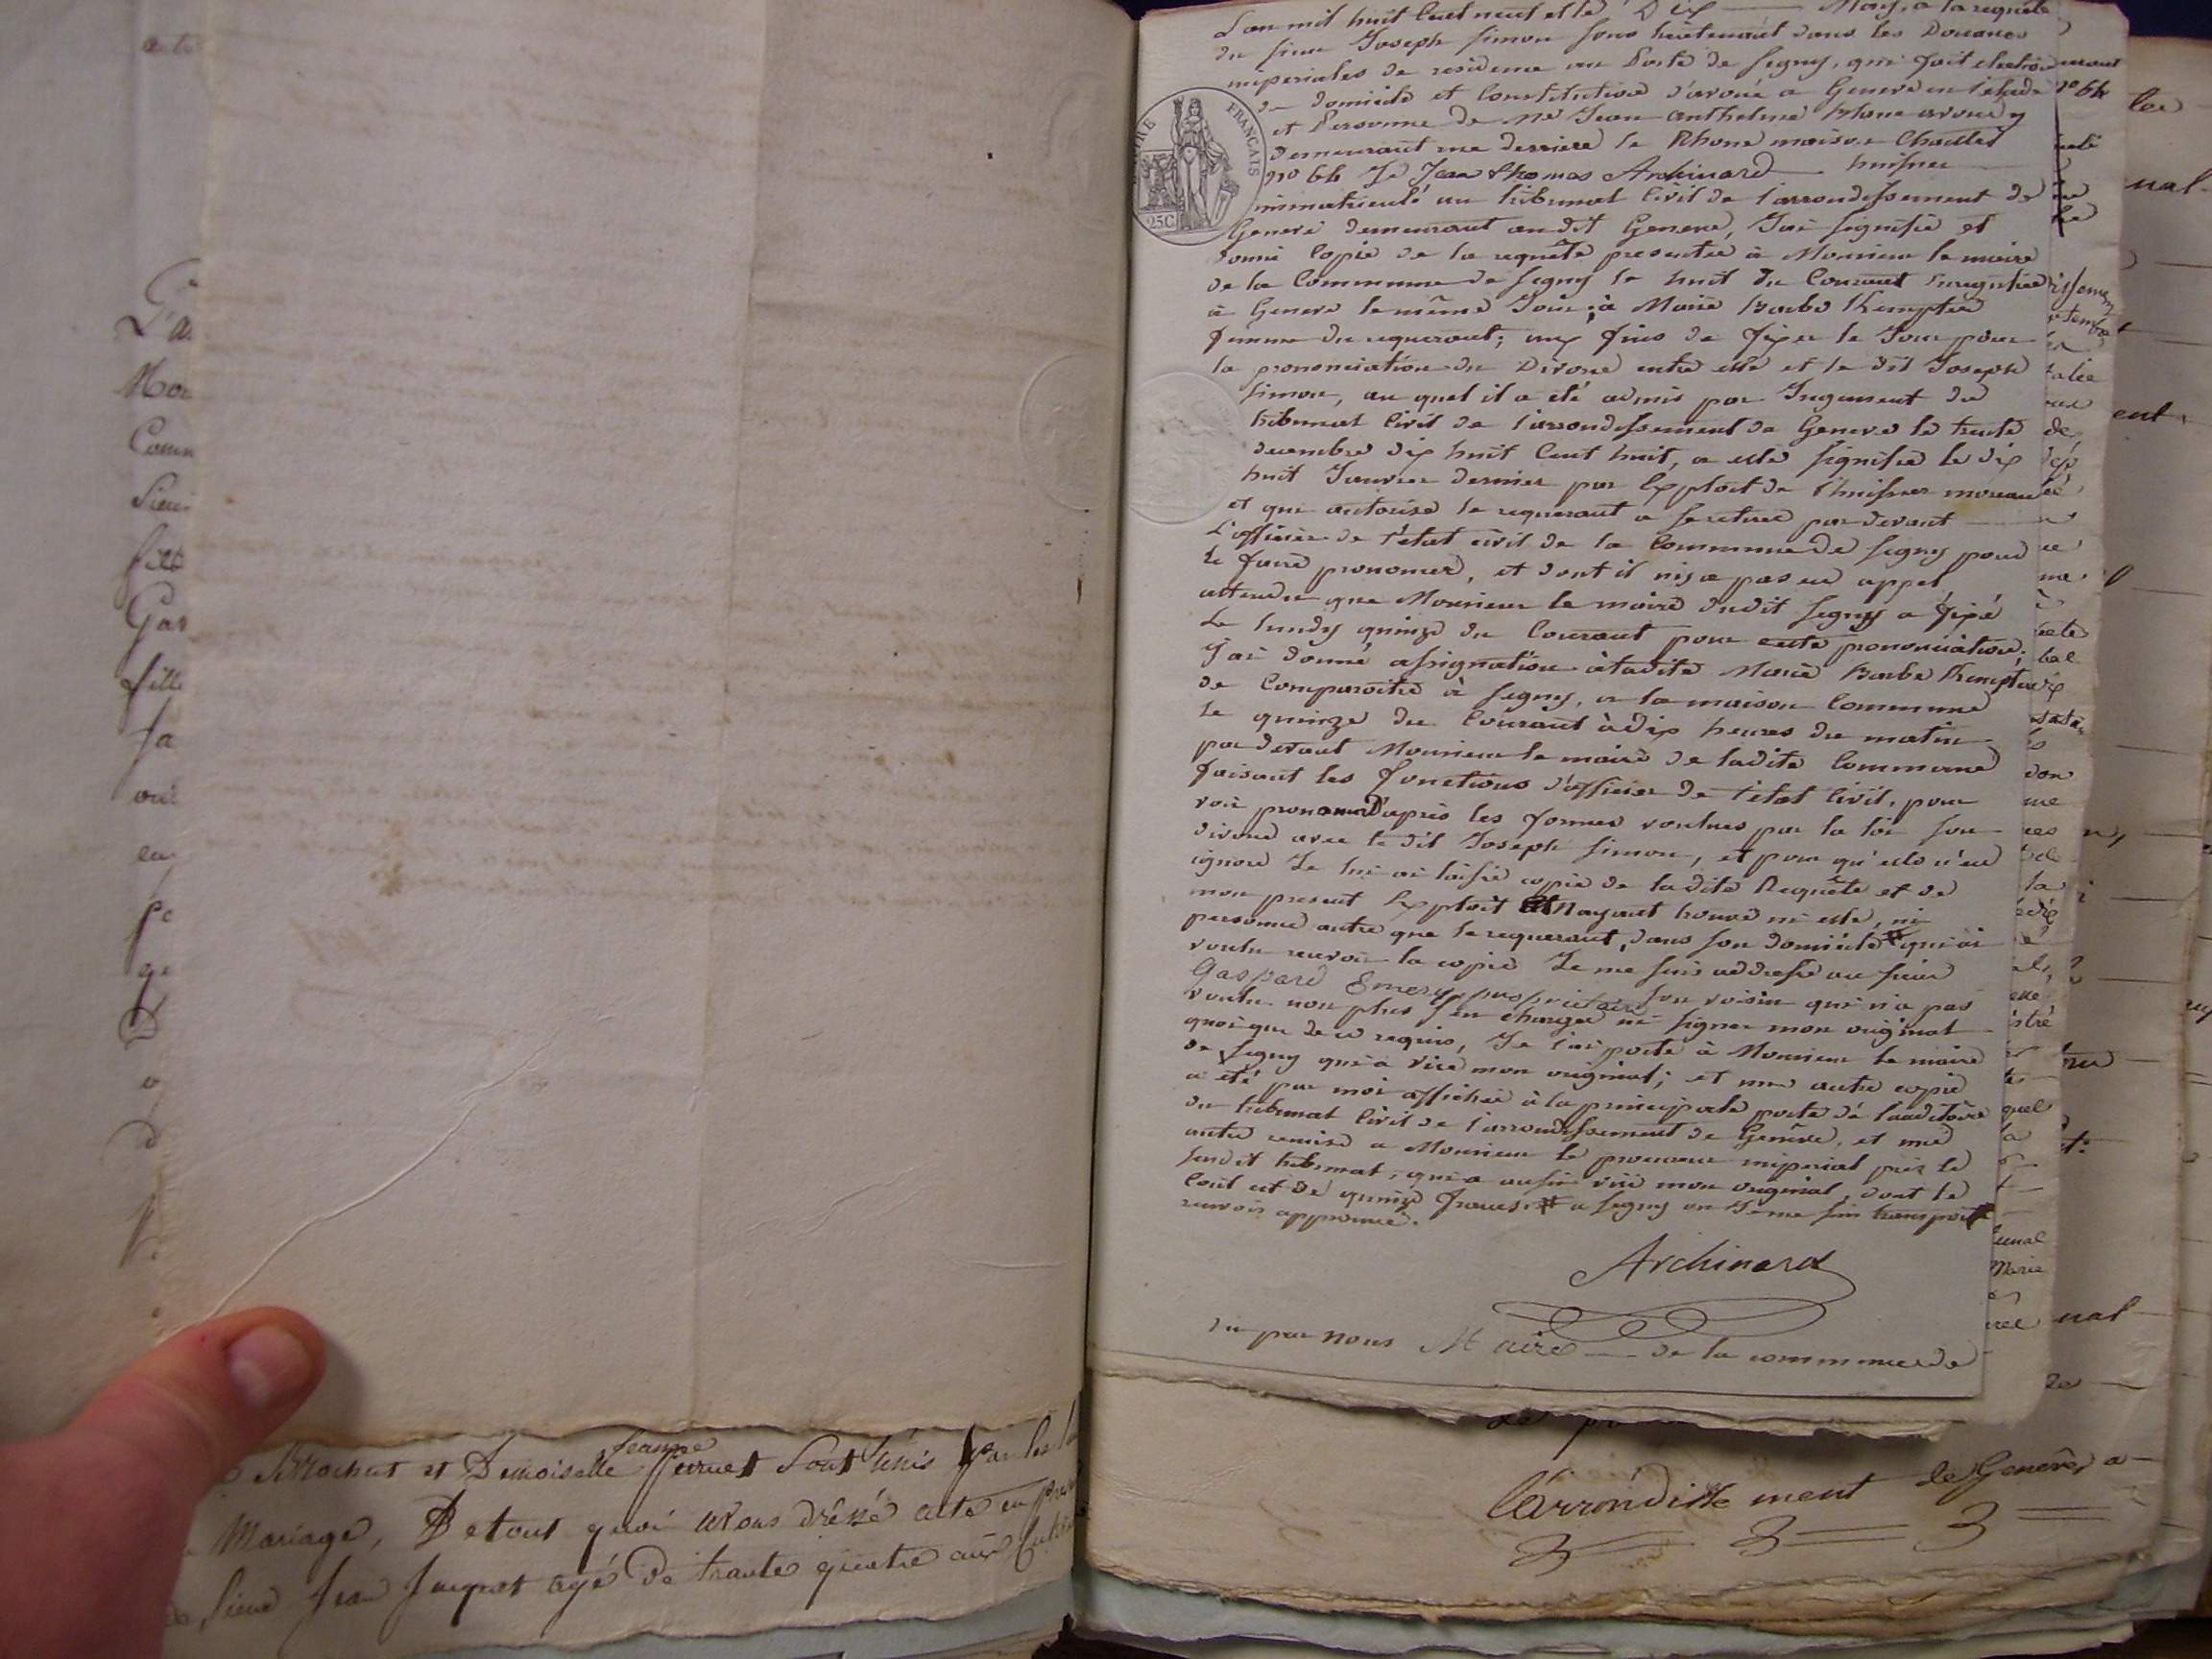 L'an mil huit cent neuf et le Dix Mars, a la requête
du sieur Joseph Simon sous lieutenant dans les Douanes
imperiales de residence au Poste de Segny, qui fait election
de domicile et Constitution d'avoué a Geneve en l'étude
et Personne de Me Jean Anthelme Blanc avoué y
demeurant rue derriere le Rhone maison
no 66 Je Jean Thomas Archinard huissier
immatriculé au tribunal Civil de l'arrondissement de
Geneve demeurant au dit Geneve, J'ai signifié et
donné Copie de la requête presentée à Monsieur le maire
de la Commune de Segny le huit du Courant enregistrée
à Geneve le même Jour; à Marie Barbe Kempter
femme du requerant; aux fins de fixer le Jour pour
la prononciation du Divorce entre elle et le dit Joseph
Simon, au quel il a été admis par Jugement du
tribunal Civil de l'arrondissement de Geneve le trente
decembre dix huit Cent huit, a elle signifié le dix
huit Janvier dernier par Exploit de l'huissier moreau
et qui autorise le requerant a se retirer par devant
L'officier de l'état civil de la Commune de Segny pour
le faire prononcer, et dont il n'y a pas eu appel
attendu que Monsieur le maire dudit Segny a fixé
Le lundy quinze du Courant pour cette prononciation;
J'ai donné assignation à ladite Marie Barbe Kempter
de Comparoitre à Segny, a la maison Commune
le quinze du Courant à dix heures du matin
par devant Monsieur le maire de ladite Commune
faisant les fonctions d'officier de l'état Civil, pour
voir prononcer d'après les formes voulues par la loi son
divorce avec le dit Joseph Simon, et pour qu'elle n'en
ignore Je lui ai laissé copie de ladite Requête et de
mon present Exploit Nayant trouvé ni elle, ni
personne autre que le requerant, dans son domicile # qui ai
voulu recevoir la copie Je me suis addressé au sieur
Gaspard Emery proprietaire son voisin qui n'a pas
voulu non plus s'en charger ni signer mon original
quoique de ce requis, Je l'ai porté à Monsieur le maire
de Segny qui a visé mon original; et une autre copie
a été par moi affichée à la principale porte de l'auditoire
du tribunal Civil de l'arrondissement de Genève, et une
autre remise a Monsieur le procureur imperial près le
susdit tribunal, qui a aussi visé mon original, dont le
Cout est de quinze francs. # a Segny ou Je me suis transporté
renvoi approuvé.
Archinard
Vu par nous Maire de la commune de
L'arrondissement de Genève, a
et Demoiselle Jeanne Perruet Sont Unis Par les
Mariage, De tout quoi avons dréssé acte en
Sieur Jean age de trante quatre ans